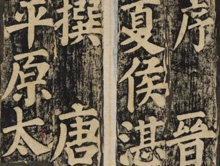 序晋
夏侯湛
撰唐
平原太